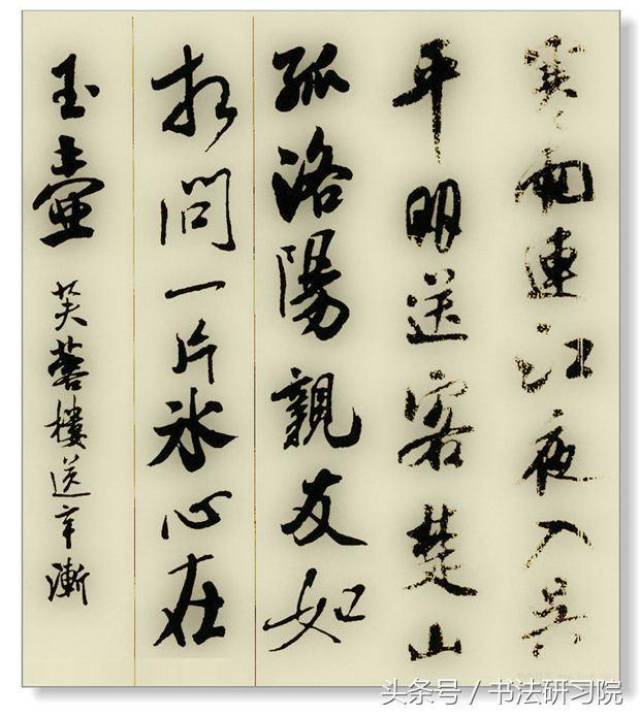 寒雨連江夜入吴
平明送客楚山
孤洛陽親友如
相問一片冰心在
玉壺 芙蓉樓送辛漸
头条号 / 书法研习院